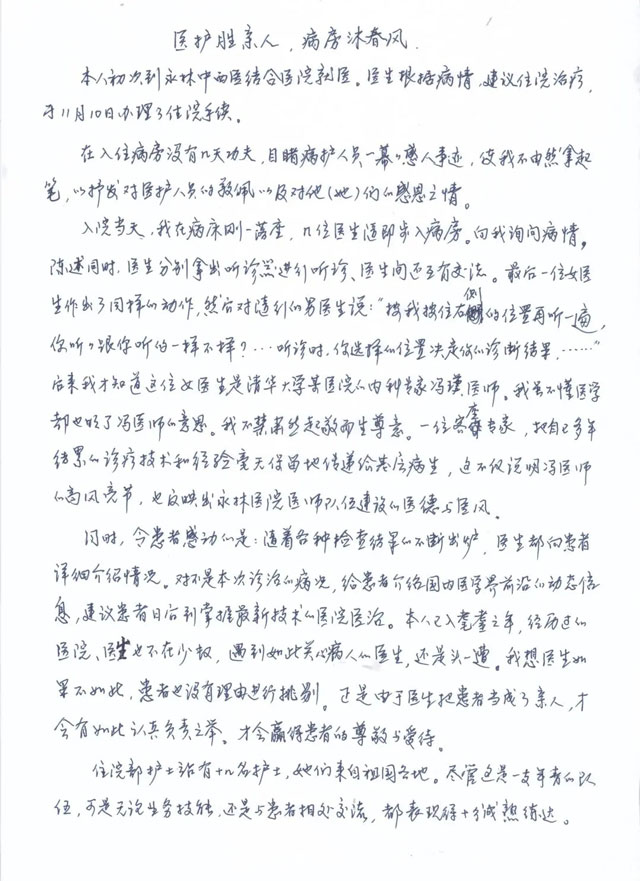 医护胜亲人，病房沐春风.
本人初次到永林中西医结合医院就医。医生根据病情，建议住院治疗，
于11月10日办理了住院手续。
在入住病房没有几天功夫，目睹病护人员一幕幕感人事迹，使我不由然拿起
笔，以抒发对医护人员的敬佩以及对他(她)们的感恩之情。
入院当天，我在病床刚一落座，几位医生随即步入病房。向我询问病情。
陈述同时，医生分别拿出听诊器进行听诊、医生间还互有交流。最后一位女医
生作出了同样的动作，然后对随行的男医生说："按我按住右侧的位置再听一遍，
你听听跟你听的一样不一样？…听诊时，你选择的位置决定你的诊断结果，……"
后来我才知道这位女医生是清华大学某医院的内科专家冯瑾医师。我虽不懂医学
却也晓了冯医师的意思。我不禁肃然起敬而生尊意。一位客座专家，把自己多年
结累的诊疗技术和经验毫无保留地传递给基层病生，这不仅说明冯医师
的高风亮节，也反映出永林医院医师队伍建设的医德与医风。
同时，令患者感动的是：随着各种检查结果的不断出炉，医生都向患者
详细介绍情况。对不是本次诊治的病况，给患者介绍国内医学界前沿的动态信
息，建议患者日后到掌握最新技术的医院医治。本人已入耄耋之年，经历过的
医院、医生也不在少数，遇到如此关心病人的医生，还是头一遭。我想医生如
果不如此，患者也没有理由进行挑剔。正是由于医生把患者当成了亲人，才
会有如此认真负责之举。才会赢得患者的尊敬与爱待。
住院部护士站有十几名护士，她们来自祖国各地。尽管这是一支年青的队
伍，可是无论业务技能，还是与患者相处交流，都表现得十分诚熟练达。